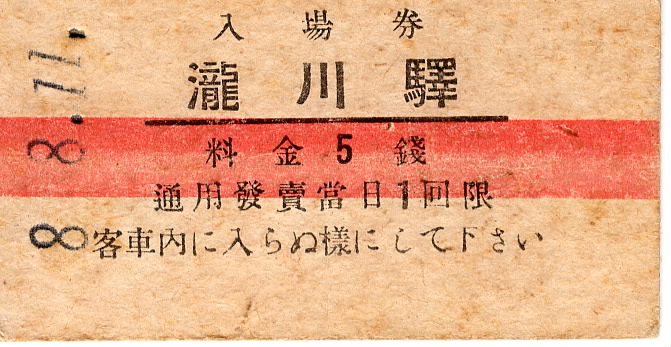 入場券
瀧川驛
料金5錢
通用發賣當日1回限
客車內に入らぬ樣にして下さい
8.8.11.